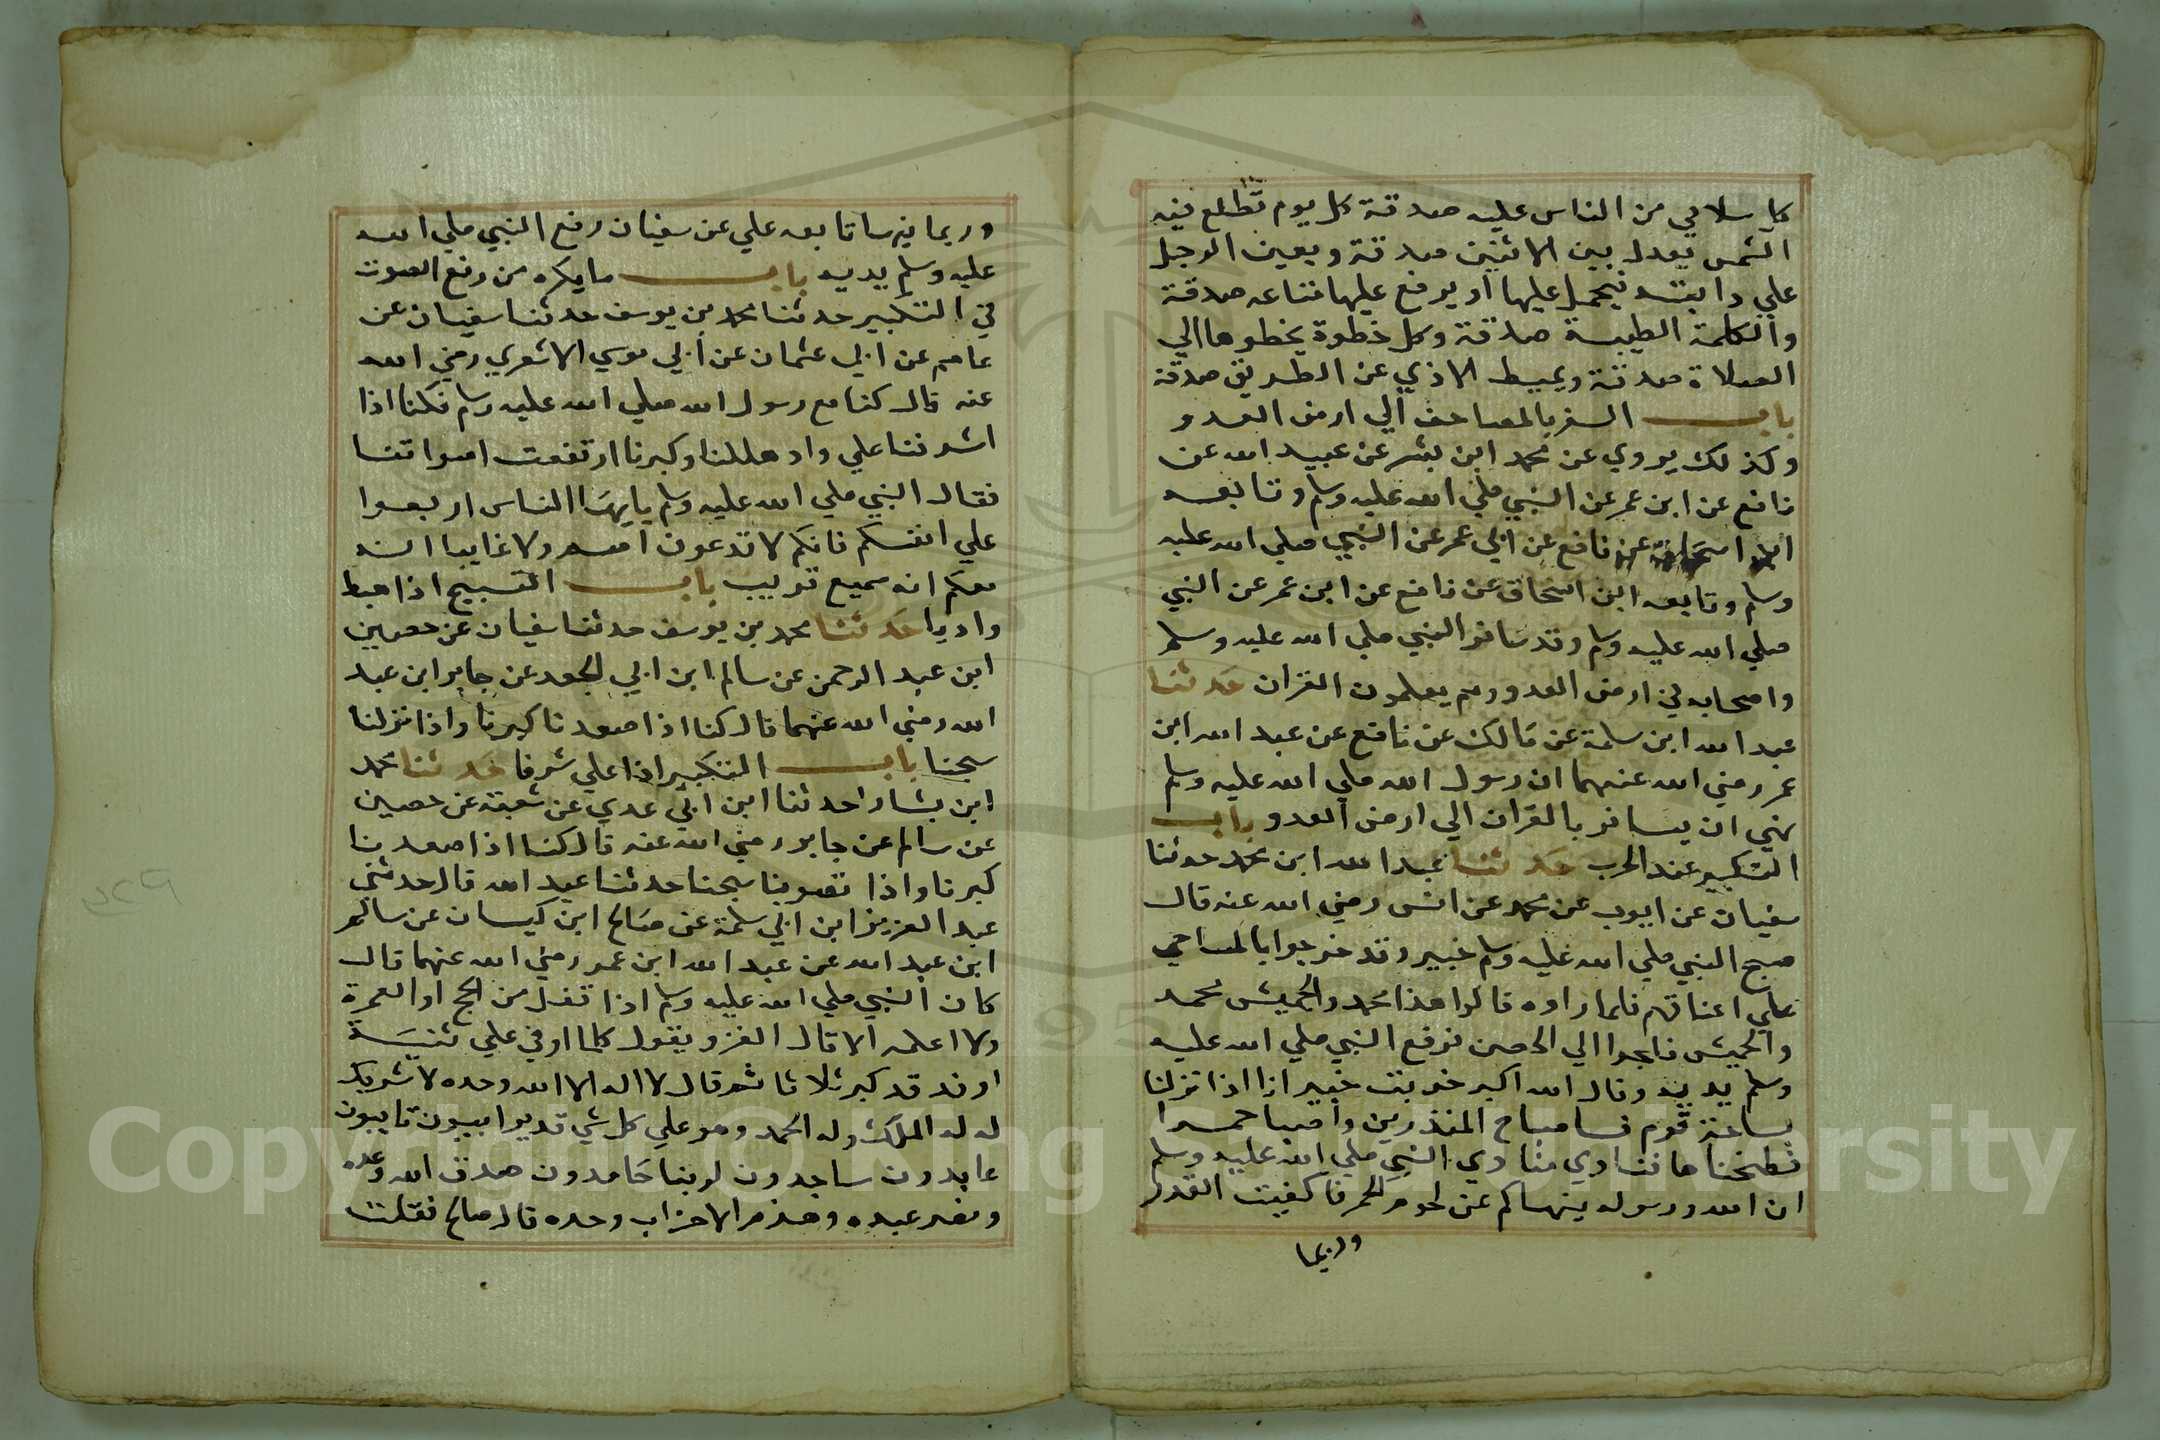 كل سلامي من الناس عليه صدقة كل يوم تطلع فيه
الشمس يعدل بين الاثنين صدقة ويعين الرجل
علي دابته فيحمل عليها او يرفع عليها متاعه صدقة
والكلمة الطيبة صدقة وكل خطوة يخطوها الي
الصلاة صدقة ويميط الاذي عن الطريق صدقة
باب السفر بالمصاحف الي ارض العدو
وكذلك يروي عن محمد ابن بشر عن عبيد الله عن
نافع عن ابن عمر عن النبي صلي الله عليه وسلم وتابعه
عن نافع عن ابي عمر عن النبي صلي الله عليه
وسلم وتابعه ابن اسحاق عن نافع عن ابن عمر عن النبي
صلي الله عليه وسلم وقد سافر النبي صلي الله عليه وسلم
واصحابه في ارض العدو وهم يعلمون القران حدثنا
عبد الله ابن سلمة عن مالك عن نافع عن عبد الله ابن
عمر رضي الله عنهما ان رسول الله صلي الله عليه وسلم
نهي ان يسافر بالقران الي ارض العدو باب
التكبير عند الحرب حدثنا عبد الله ابن محمد حدثنا
سفيان عن ايوب عن محمد عن انس رضي الله عنه قال
صبح النبي صلي الله عليه وسلم خيبر وقد خرجوا بالمساحي
علي اعناقهم فلما راوه قالوا هذا محمد والخميس محمد
والخميس فلجوا الي الحصن فرفع النبي صلي الله عليه
وسلم يديه وقال الله اكبر خربت خيبر انا اذا نزلنا
بساحة قوم فسا صباح المنذرين واصبنا حمرا
فطبخناها فنادي منادي النبي صلي الله عليه وسلم
ان الله ورسوله ينهاكم عن لحوم الحمر فاكفيت القدر
وربما
وربما تابعه علي عن سفيان رفع النبي صلي الله
عليه وسلم يديه باب ما يكره من رفع الصوت
في التكبير حدثنا محمد بن يوسف حدثنا سفيان عن
عاصم عن ابي عثمان عن ابي موسي الاشعري رضي الله
عنه قال كنا مع رسول الله صلي الله عليه وسلم فكنا اذا
اشرفنا علي واد هللنا وكبرنا ارتفعت اصواتنا
فقال النبي صلي الله عليه وسلم يايها الناس اربعوا
علي انفسكم فانكم لا تدعون اصم ولا غايبا انه
معكم انه سميع قريب باب التسبيح اذا هبط
واديا حدثنا محمد بن يوسف حدثنا سفيان عن حصين
ابن عبد الرحمن عن سالم ابن ابي الجعد عن جابر ابن عبد
الله رضي الله عنهما قال كنا اذا صعدنا كبرنا واذا نزلنا
سبحنا باب التكبير اذا علي شرفا حدثنا محمد
ابن بشار حدثنا ابن ابي عدي عن شعبة عن حصين
عن سالم عن جابر رضي الله عنه قال كنا اذا صعدنا
كبرنا واذا تصوبنا سبحنا حدثنا عبد الله قال حدثني
عبد العزيز ابن ابي سلمة عن صالح ابن كيسان عن سالم
ابن عبد الله عن عبد الله ابن عمر رضي الله عنهما قال
كان النبي صلي الله عليه وسلم اذا قفل من الحج او العمرة
ولا اعلمه الا قال الغزو يقول كلما اوفي علي ثنية
او فدفد كبر ثلاثا ثم قال لا اله الا الله وحده لا شريك
له له الملك وله الحمد وهو علي كل شي قدير ايبون تايبون
عابدون ساجدون لربنا حامدون صدق الله وعده
ونصر عبده وهزم الاحزاب وحده قال صالح فقلت
Copyright © King Saud University